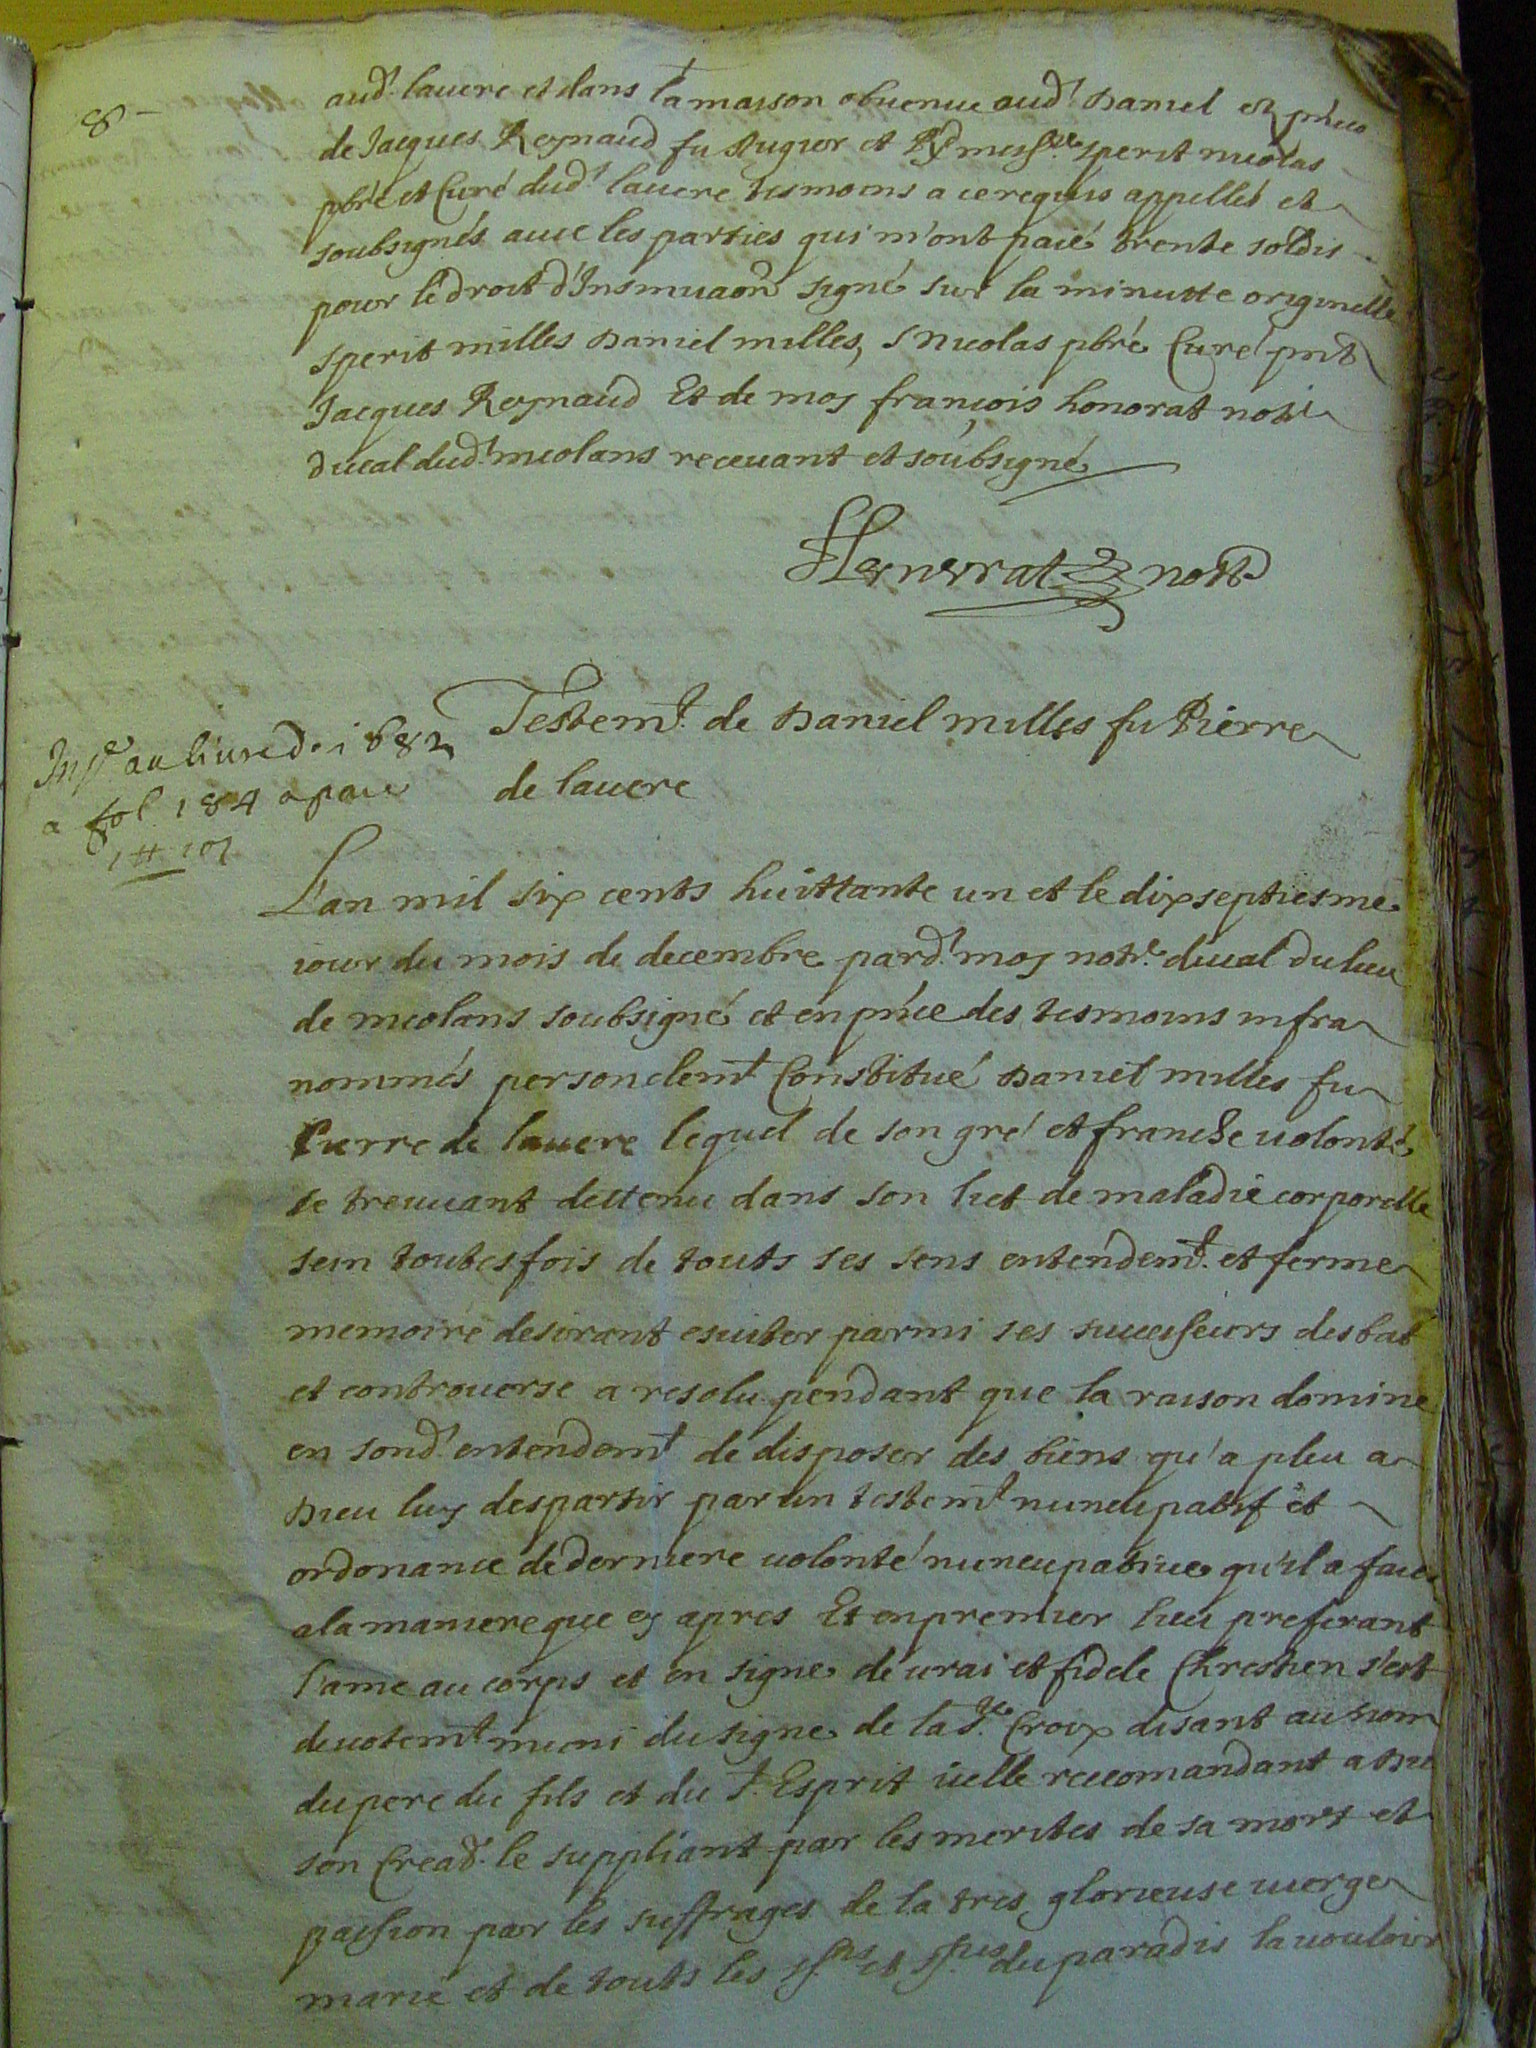 8 –
aud.t lauere et dans la maison obuenue aud.t Daniel en pñce
de Jacques Reynaud fu Augier et R.d mess.re sperit nicolas
pbrê et Curé dud.t lauere tesmoins a ce requis appellés et
soubsignés auec les parties qui m'ont paié trente soldis
pour le droit d'Insinuaôn signé sur la minutte originelle
sperit milles Daniel milles, S nicolas pbrê Curé pnt
Jacques Reynaud Et de moy françois honorat not.re
ducal dud.t meolans receuant et soubsigné
Honnorat not.e
Testem.t de Daniel milles fu Pierre
de lauere
Ins.é au liure d. 1682
a fol. 184 a paié
1 ₶ 10 s
L'an mil six cents huittante un et le dixseptiesme
iour du mois de decembre pard.t moy not.re ducal du lieu
de meolans soubsigné et en pñce des tesmoins infra
nommés personelem.t Constitué Daniel milles fu
Pierre de lauere lequel de son gré et franche uolonté
se treuuant dettenu dans son lict de maladie corporelle
sein toutesfois de touts ses sens entendem.t et ferme
memoire desirant esuiter parmi ses successeurs desbat
et controuerse a resolu pendant que la raison domine
en sond.t entendem.t de disposer des biens qu'a pleu a
Dieu luy despartir par un testem.t nuncupatif et
ordonance de derniere uolonté nuncupatiue qu'il a faict
a la maniere que cy apres Et en premier lieu preferant
l'ame au corps et en signe de urai et fidele Chrestien s'est
deuotem.t muni du signe de la S.te Croix disant au nom
du pere du fils et du S.t Esprit icelle recomandant a Dieu
son Cread.r le suppliant par les merites de sa mort et
passion par les suffrages de la tres glorieuse uierge
marie et de touts les ss.nts et ss.tes du paradis la uouloir